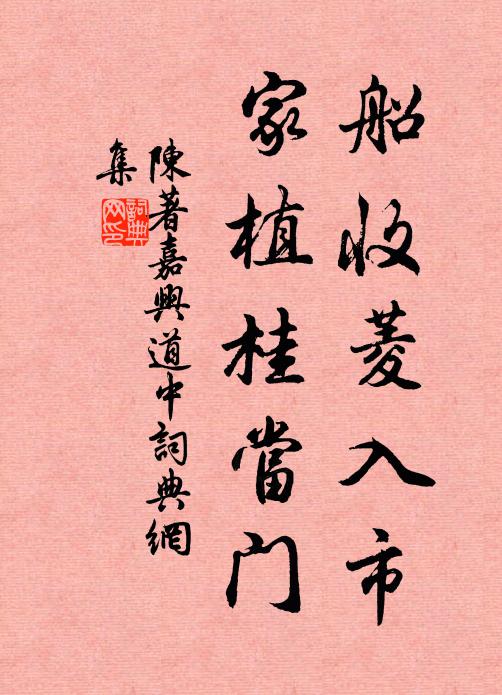 船收菱入市
家植桂當门
陳著嘉興道中詞典網
集
詞典网印